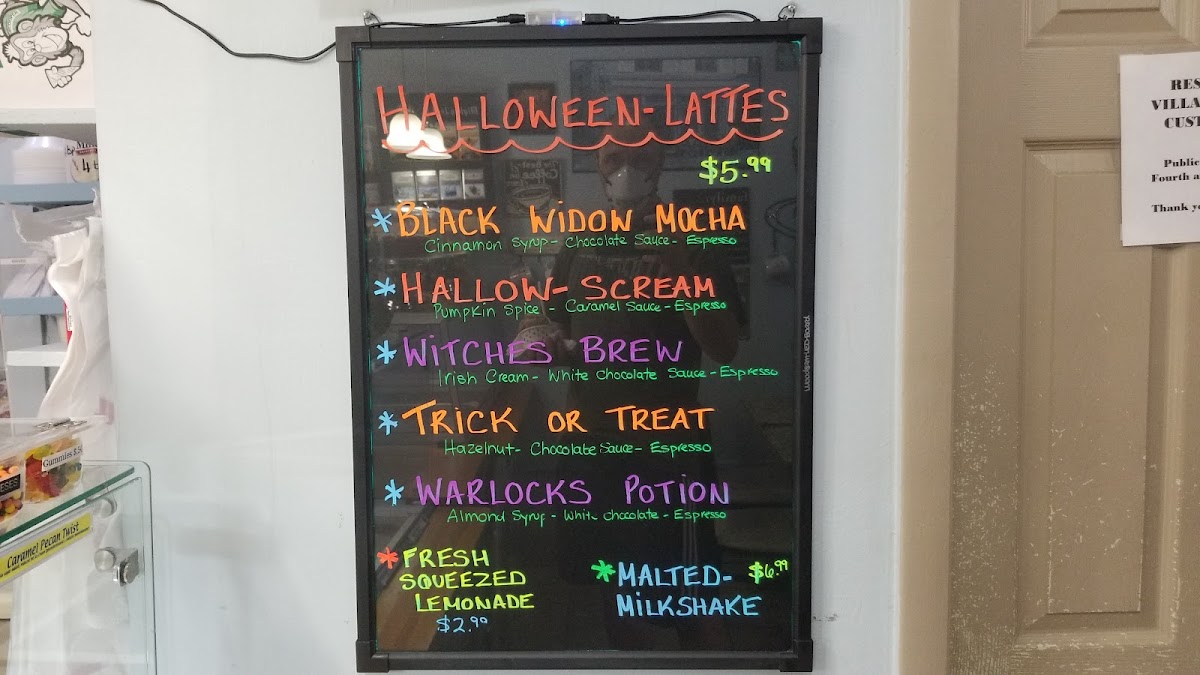 HALLOWEEN-LATTES
$5.99
* BLACK WIDOW MOCHA
Cinnamon Syrup - Chocolate Sauce - Espresso
* HALLOW-SCREAM
Pumpkin Spice - Caramel Sauce - Espresso
* WITCHES BREW
Irish Cream - White Chocolate Sauce - Espresso
* TRICK OR TREAT
Hazelnut - Chocolate Sauce - Espresso
* WARLOCKS POTION
Almond Syrup - White chocolate - Espresso
* FRESH
SQUEEZED
LEMONADE
$2.99
* MALTED- $6.99
MILKSHAKE
RES
VILLA
CUST
Public
Fourth a
Thank yo
Gummies
Caramel Pecan Twist